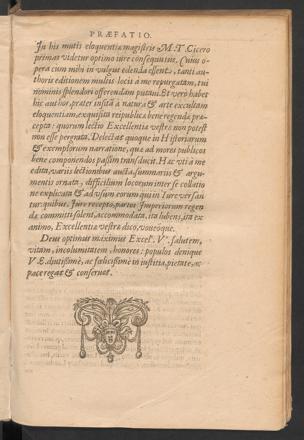 PRÆFATIO.
In his mutis eloquentiæ magistris M.T. Cicero
primas videtur optimo iure consequutus. Cuius o-
pera cum mihi in vulgus edenda essent, tanti au-
thoris editionem multis locis à me repurgatam, tui
nominis splendori offerendam putavi. Et verò habet
hic author præter insitā à natura & arte excultam
eloquentiam, exquisita reipublicæ bene regendæ præ-
cepta: quorum lectio Excellentiæ vestræ non potest
non esse pergrata. Delectat quoque in Historiarum
& exemplorum narratione, quæ ad mores publicos
bene componendos passim transducit. Hæc vti à me
edita, variis lectionibus aucta, summariis & argu-
mentis ornata, difficilium locorum inter se collatio
ne explicata & ad vsum eorum qui in Iure versan
tur, quibus Iure recepto partes Imperiorum regen
dæ committi solent, accommodata, ita lubens, ita ex
animo, Excellentiæ vestræ dico, voueóque.
Deus optimus maximus Excelˡ. Vˢ. salutem,
vitam, incolumitatem, honores: populos denique
V.E. diutissimè, ac fœlicissimè in iustitia, pietate, ac
pace regat & conseruet.